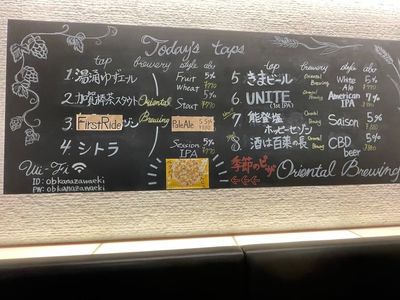 Today's taps
tap brewery style abv
1. 湯涌ゆずエール Fruit Wheat 5% ¥770
2. 加賀棒茶スタウト Oriental Brewing Stout 5% ¥770
3. FirstRide ゾン Pale Ale 5.5%
4 シトラ Session IPA 5% ¥770
Wi-Fi
ID: obkanazawaeki
PW: obkanazawaeki
tap brewery style abv
5. きまビール Oriental Brewing White Ale 5% ¥770
6. UNITE (1st IPA) Oriental Brewing American IPA 7% ¥770
7 能登塩ホッピーセゾン Oriental Brewing Saison 5%
8. 酒は百薬の長 Oriental Brewing CBD beer 5%
季節のピザ
Oriental Brewing